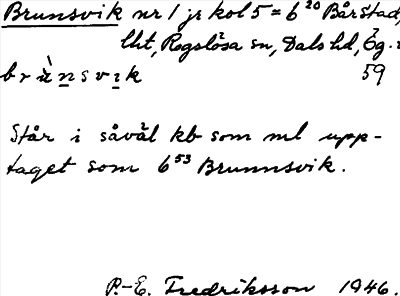 Brunsvik nr 1 jr kol 5 = 6 20 Bårstad,
lht, Rogslösa sn, Dals hd, Ög.
59
brùnsvık
Står i såväl kb som ml upp-
taget som 6 53 Brunnsvik.
P.-E. Fredriksson 1946.